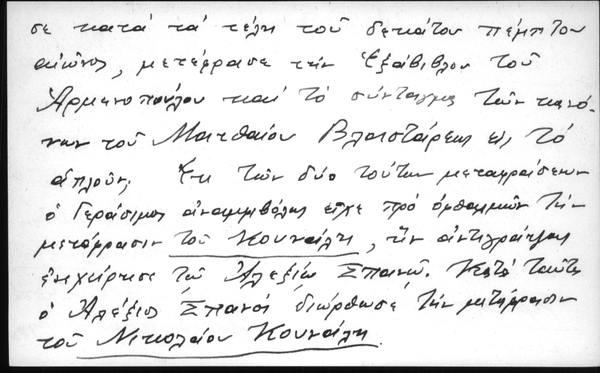 σε κατά τά τέλη τοῦ δεκάτου πέμπτου
αἰῶνος, μετέφρασε τήν Ἑξάβιβλον τοῦ
Ἁρμενοπούλου καί τό σύνταγμα τῶν κανό-
νων τοῦ Ματθαίου Βλαστάρεως εἰς τό
ἁπλοῦν. Ἐκ τῶν δύο τούτων μεταφράσεων
ὁ Γεράσιμος ἀναμφιβόλως εἶχε πρό ὀφθαλμῶν τήν
μετάφρασιν τοῦ Κουνάλη, ἥν ἀντιγράψας
ἐνεχείρισε τῷ Ἀλεξίῳ Σπανῷ. Κατά ταῦτα
ὁ Ἀλέξιος Σπανός διώρθωσε τήν μετάφρασιν
τοῦ Νικολάου Κουνάλη.